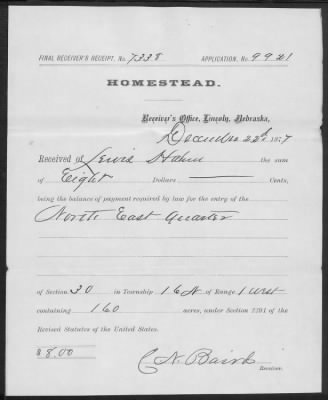 FINAL RECEIVER'S RECEIPT, No. 7338 APPLICATION, No. 9921
HOMESTEAD.
Receiver's Office, Lincoln, Nebraska,
December 22d 1877
Received of Lewis Hahn the sum
of Eight Dollars Cents,
being the balance of payment required by law for the entry of the
North East Quarter
of Section 30 in Township 16 N of Range 1 West
containing 160 acres, under Section 2291 of the
Revised Statutes of the United States.
$8.00
C. N. Baird
Receiver.